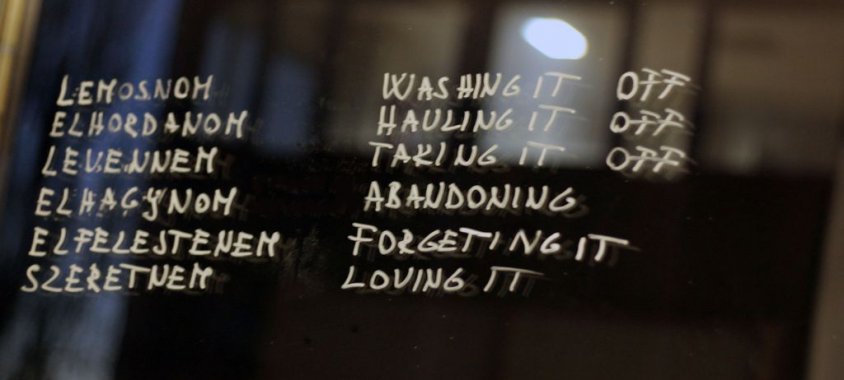 LEMOSNOM WASHING IT OFF
ELHORDANOM HAULING IT OFF
LEVENNEM TAKING IT OFF
ELHAGYNOM ABANDONING
ELFELEJTENEM FORGETING IT
SZERETNEM LOVING IT